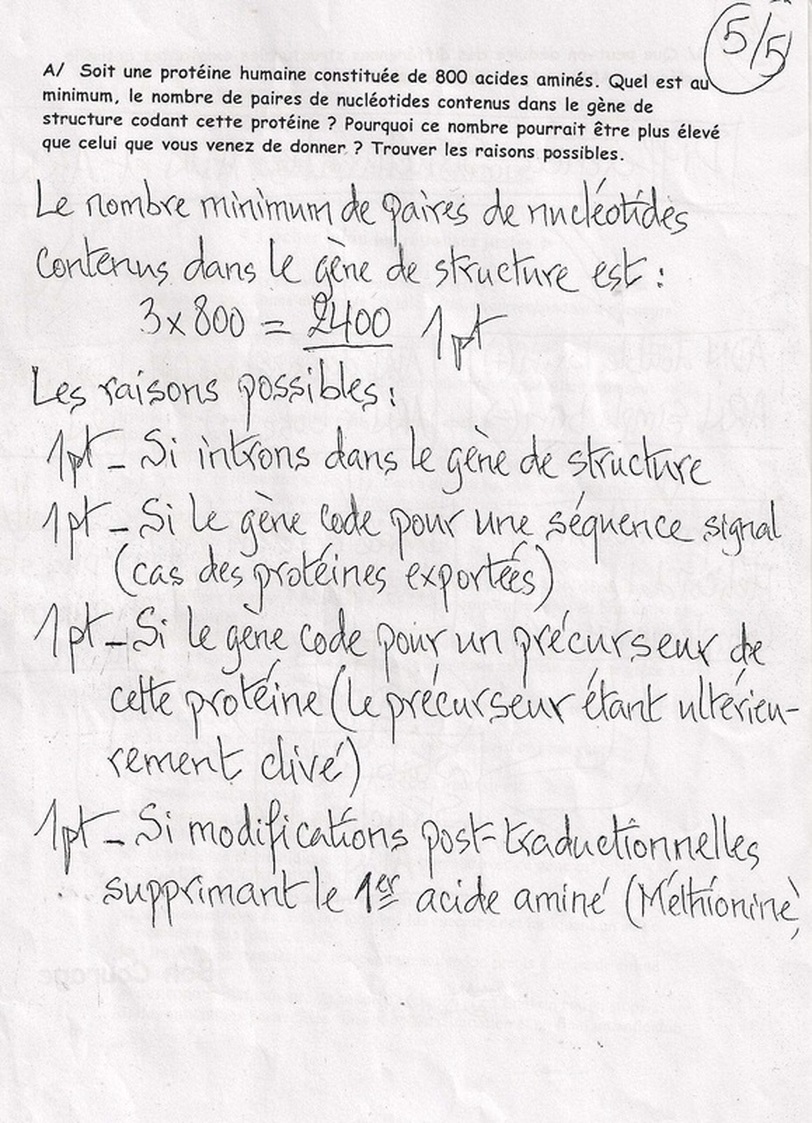 5/5
A/ Soit une protéine humaine constituée de 800 acides aminés. Quel est au
minimum, le nombre de paires de nucléotides contenus dans le gène de
structure codant cette protéine ? Pourquoi ce nombre pourrait être plus élevé
que celui que vous venez de donner ? Trouver les raisons possibles.
Le nombre minimum de paires de nucléotides
contenus dans le gène de structure est :
3 x 800 = 2400 1pt
Les raisons possibles :
1pt - Si introns dans le gène de structure
1pt - Si le gène code pour une séquence signal
(cas des protéines exportées)
1pt - Si le gène code pour un précurseur de
cette protéine (le précurseur étant ultérieu-
rement clivé)
1pt - Si modifications post-traductionnelles
supprimant le 1er acide aminé (Méthionine)
Bon Courage